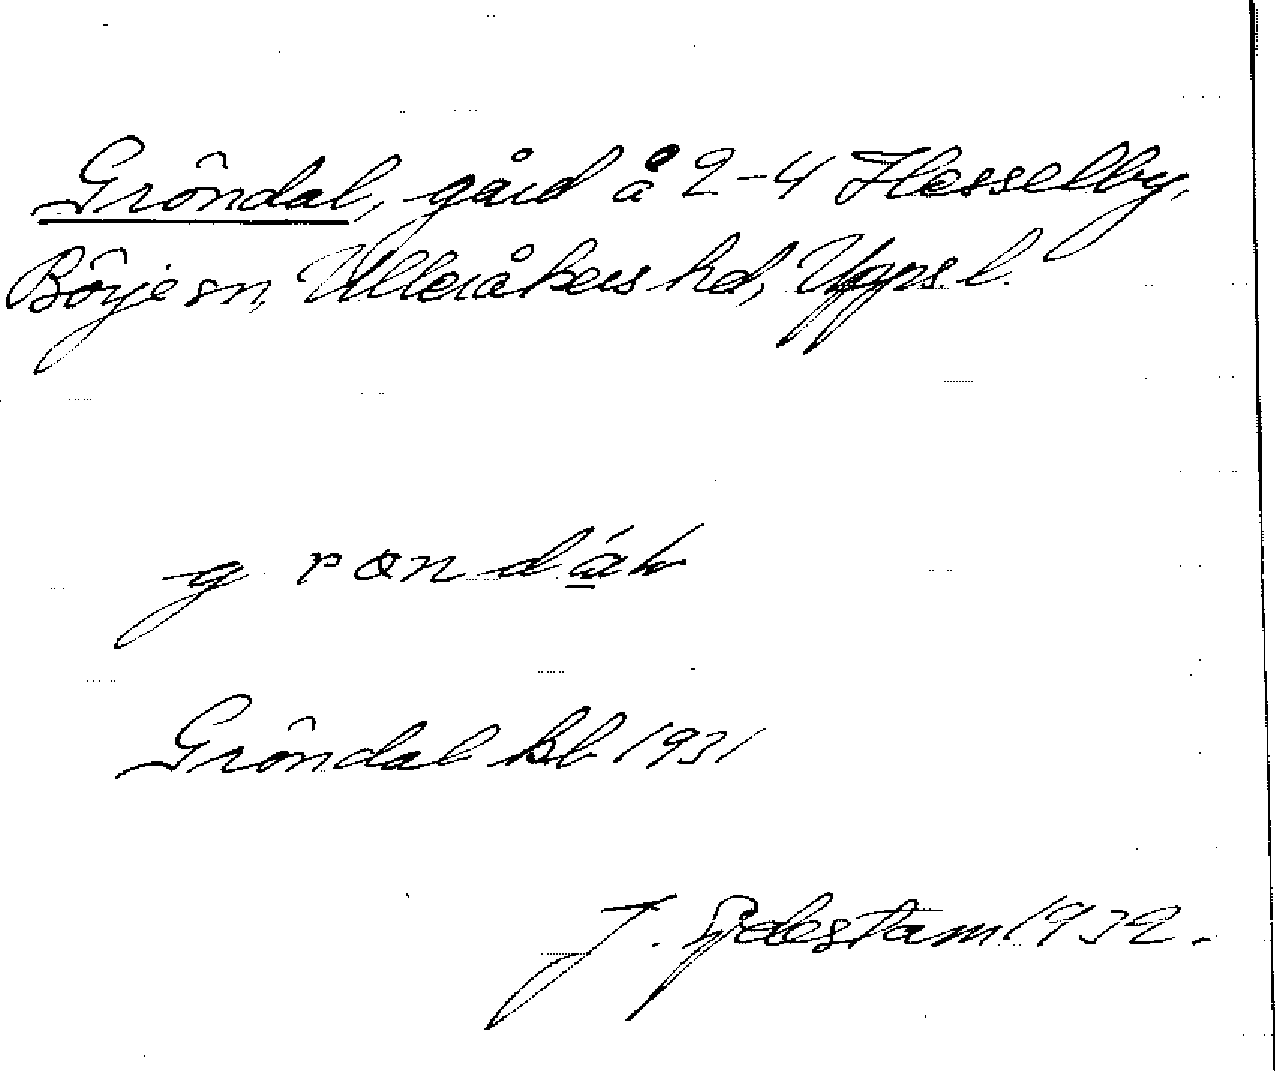 Gröndal, gård å 2-4 Hesselby,
Börje sn, Ulleråkers hd, Uppsl.
Gröndal kb 1931
J. 1932.